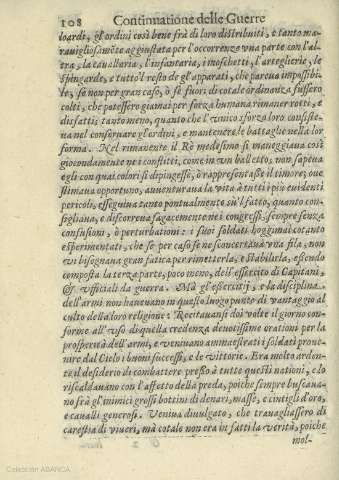 108 Continuatione delle Guerre
loardi, gl'ordini così bene frà di loro distribuiti, e tanto ma-
rauigliosamēte aggiustata per l'occorrenze vna parte con l'al-
tra, la cauallaria, l'infantaria, i moschetti, l'arteglierie, le
spingarde, e tutto'l resto de gl'apparati, che pareua impossibi-
le, sè non per gran caso, ò sè fuori di cotale ordinanza fussero
colti, che potessero giamai per forza humana rimaner rotti, e
disfatti; tanto meno, quanto che l'vnica sforza loro consiste-
ua nel conseruare gl'ordini, e mantenere le battaglie nella lor
forma. Nel rimanente il Rè medesimo si maneggiaua così
giocondamente ne i conflitti, come in vn balletto, non sapeua
egli con quai colori si dipingesse, ò rappresentasse il timore; oue
stimaua opportuno, auuenturaua la vita à tutti i più euidenti
pericoli, esseguiua tanto pontualmente sù'l fatto, quanto con-
sigliaua, e discorreua sagacemente nei congressi, sempre senza
confusioni, ò perturbationi: i suoi soldati hoggimai cotanto
esperimentati, che se per caso se ne sconcertaua vna fila, non
vi bisognaua gran fatica per rimetterla, e stabilirla, essendo
composta la terza parte, poco meno, dell'essercito di Capitani,
& vfficiali da guerra. Mà gl'essercitij, e la disciplina
dell'armi non haueuano in questo luogo punto di vantaggio al
culto della loro religione: Recitauansi doi volte il giorno con-
forme all'vso di quella credenza deuotissime orationi per la
prosperità dell'armi, e veniuano ammaestrati i soldati proue-
nire dal Cielo i buoni successi, e le vittorie. Era molto arden-
te il desiderio di combattere presso à tutte questi nationi, e lo
riscaldauano con l'affetto della preda, poiche sempre buscaua-
no frà gl'inimici grossi bottini di denari, masse, e cintigli d'oro,
e caualli generosi. Veniua diuulgato, che trauagliassero di
carestia di viueri, mà cotale non era in fatti la verità, poiche
mol-
Colección ABANCA